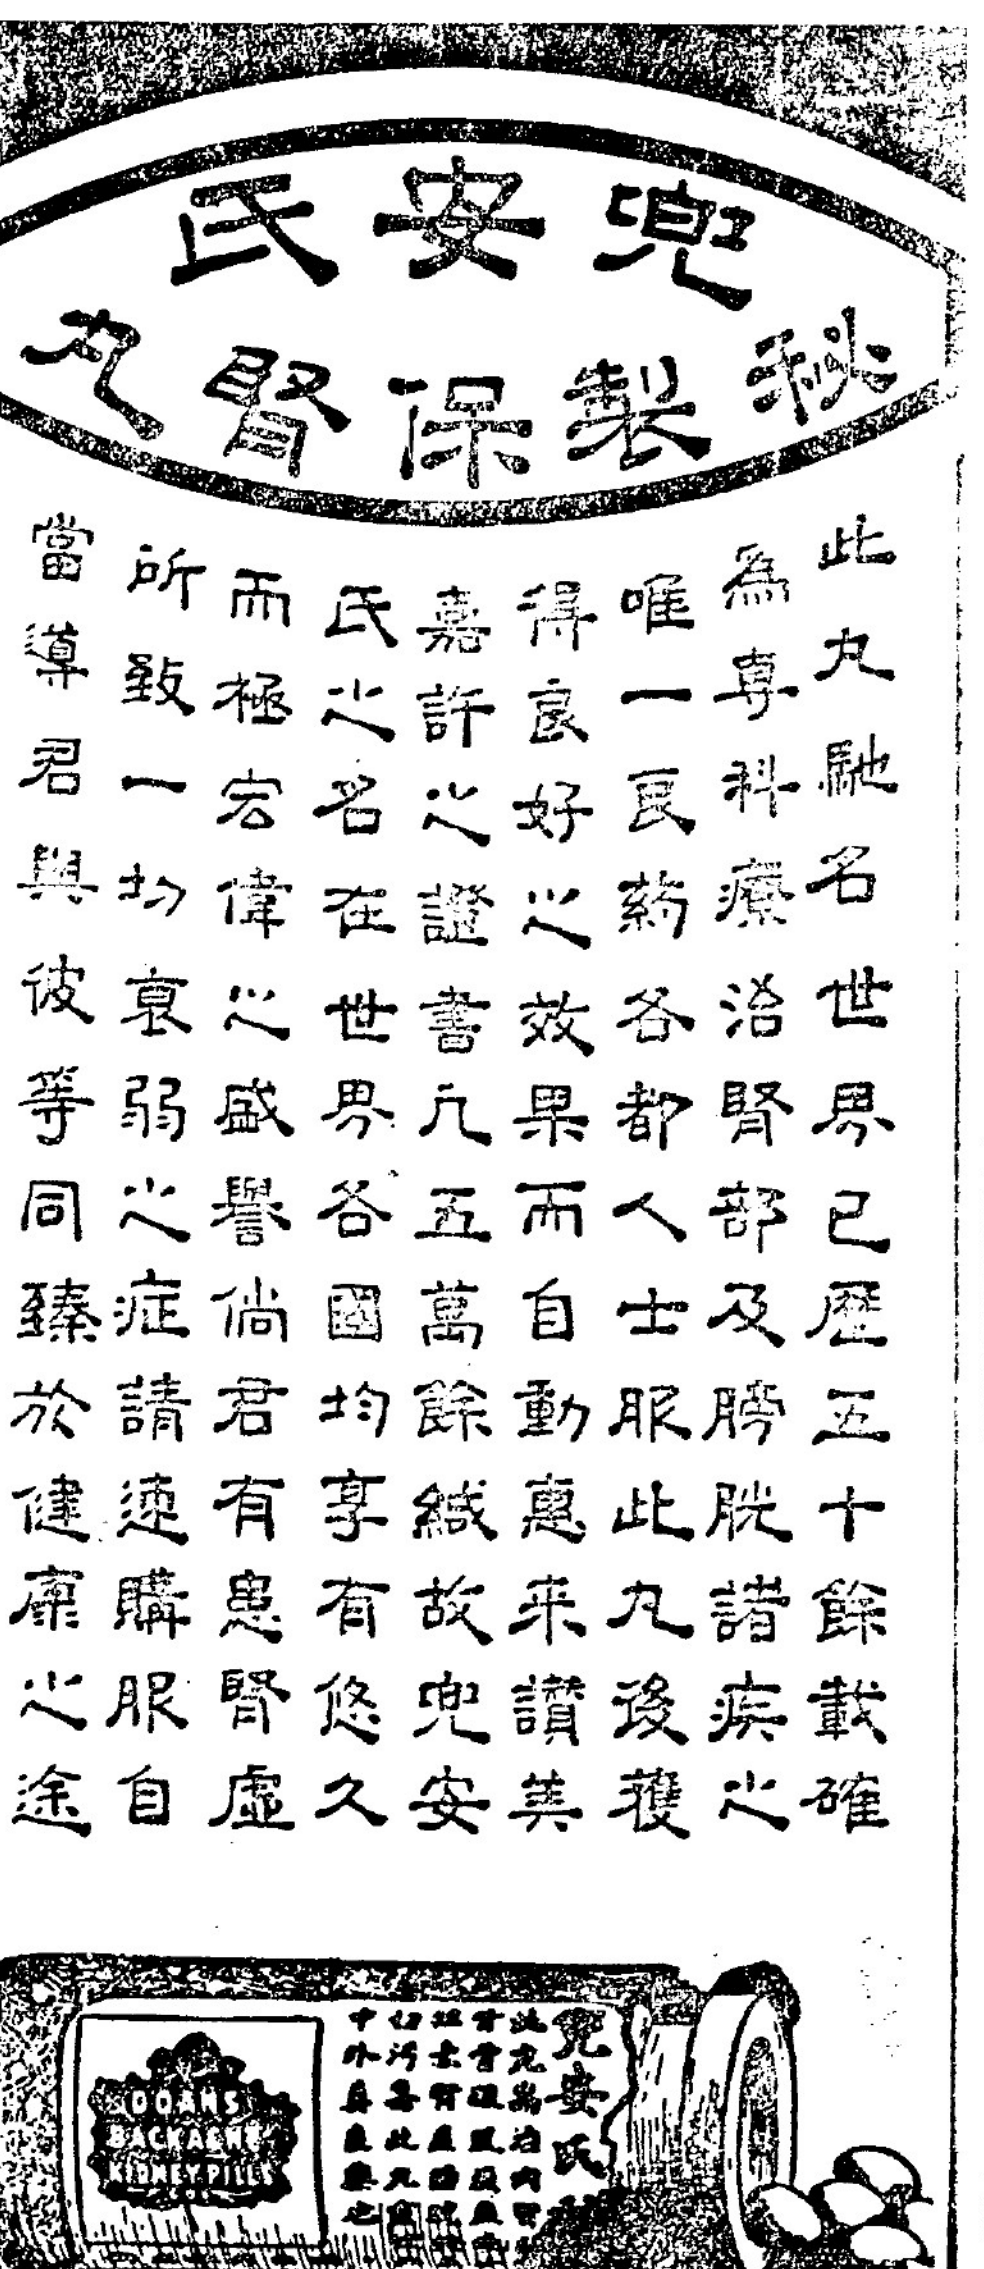 兜安氏
秘製保腎丸
此丸馳名世界已歷五十餘載確
為專科療治腎部及膀胱諸疾之
唯一良葯各都人士服此丸後獲
得良好之效果而自動惠来讚美
嘉許之證書凡五萬餘緘故兜安
氏之名在世界各國均享有悠久
而極宏偉之盛譽倘君有患腎虛
所致一切衰弱之症請速購服自
當導君與彼等同臻於健康之途
兜安氏
DOANS
BACKACHE
KIDNEY PILLS